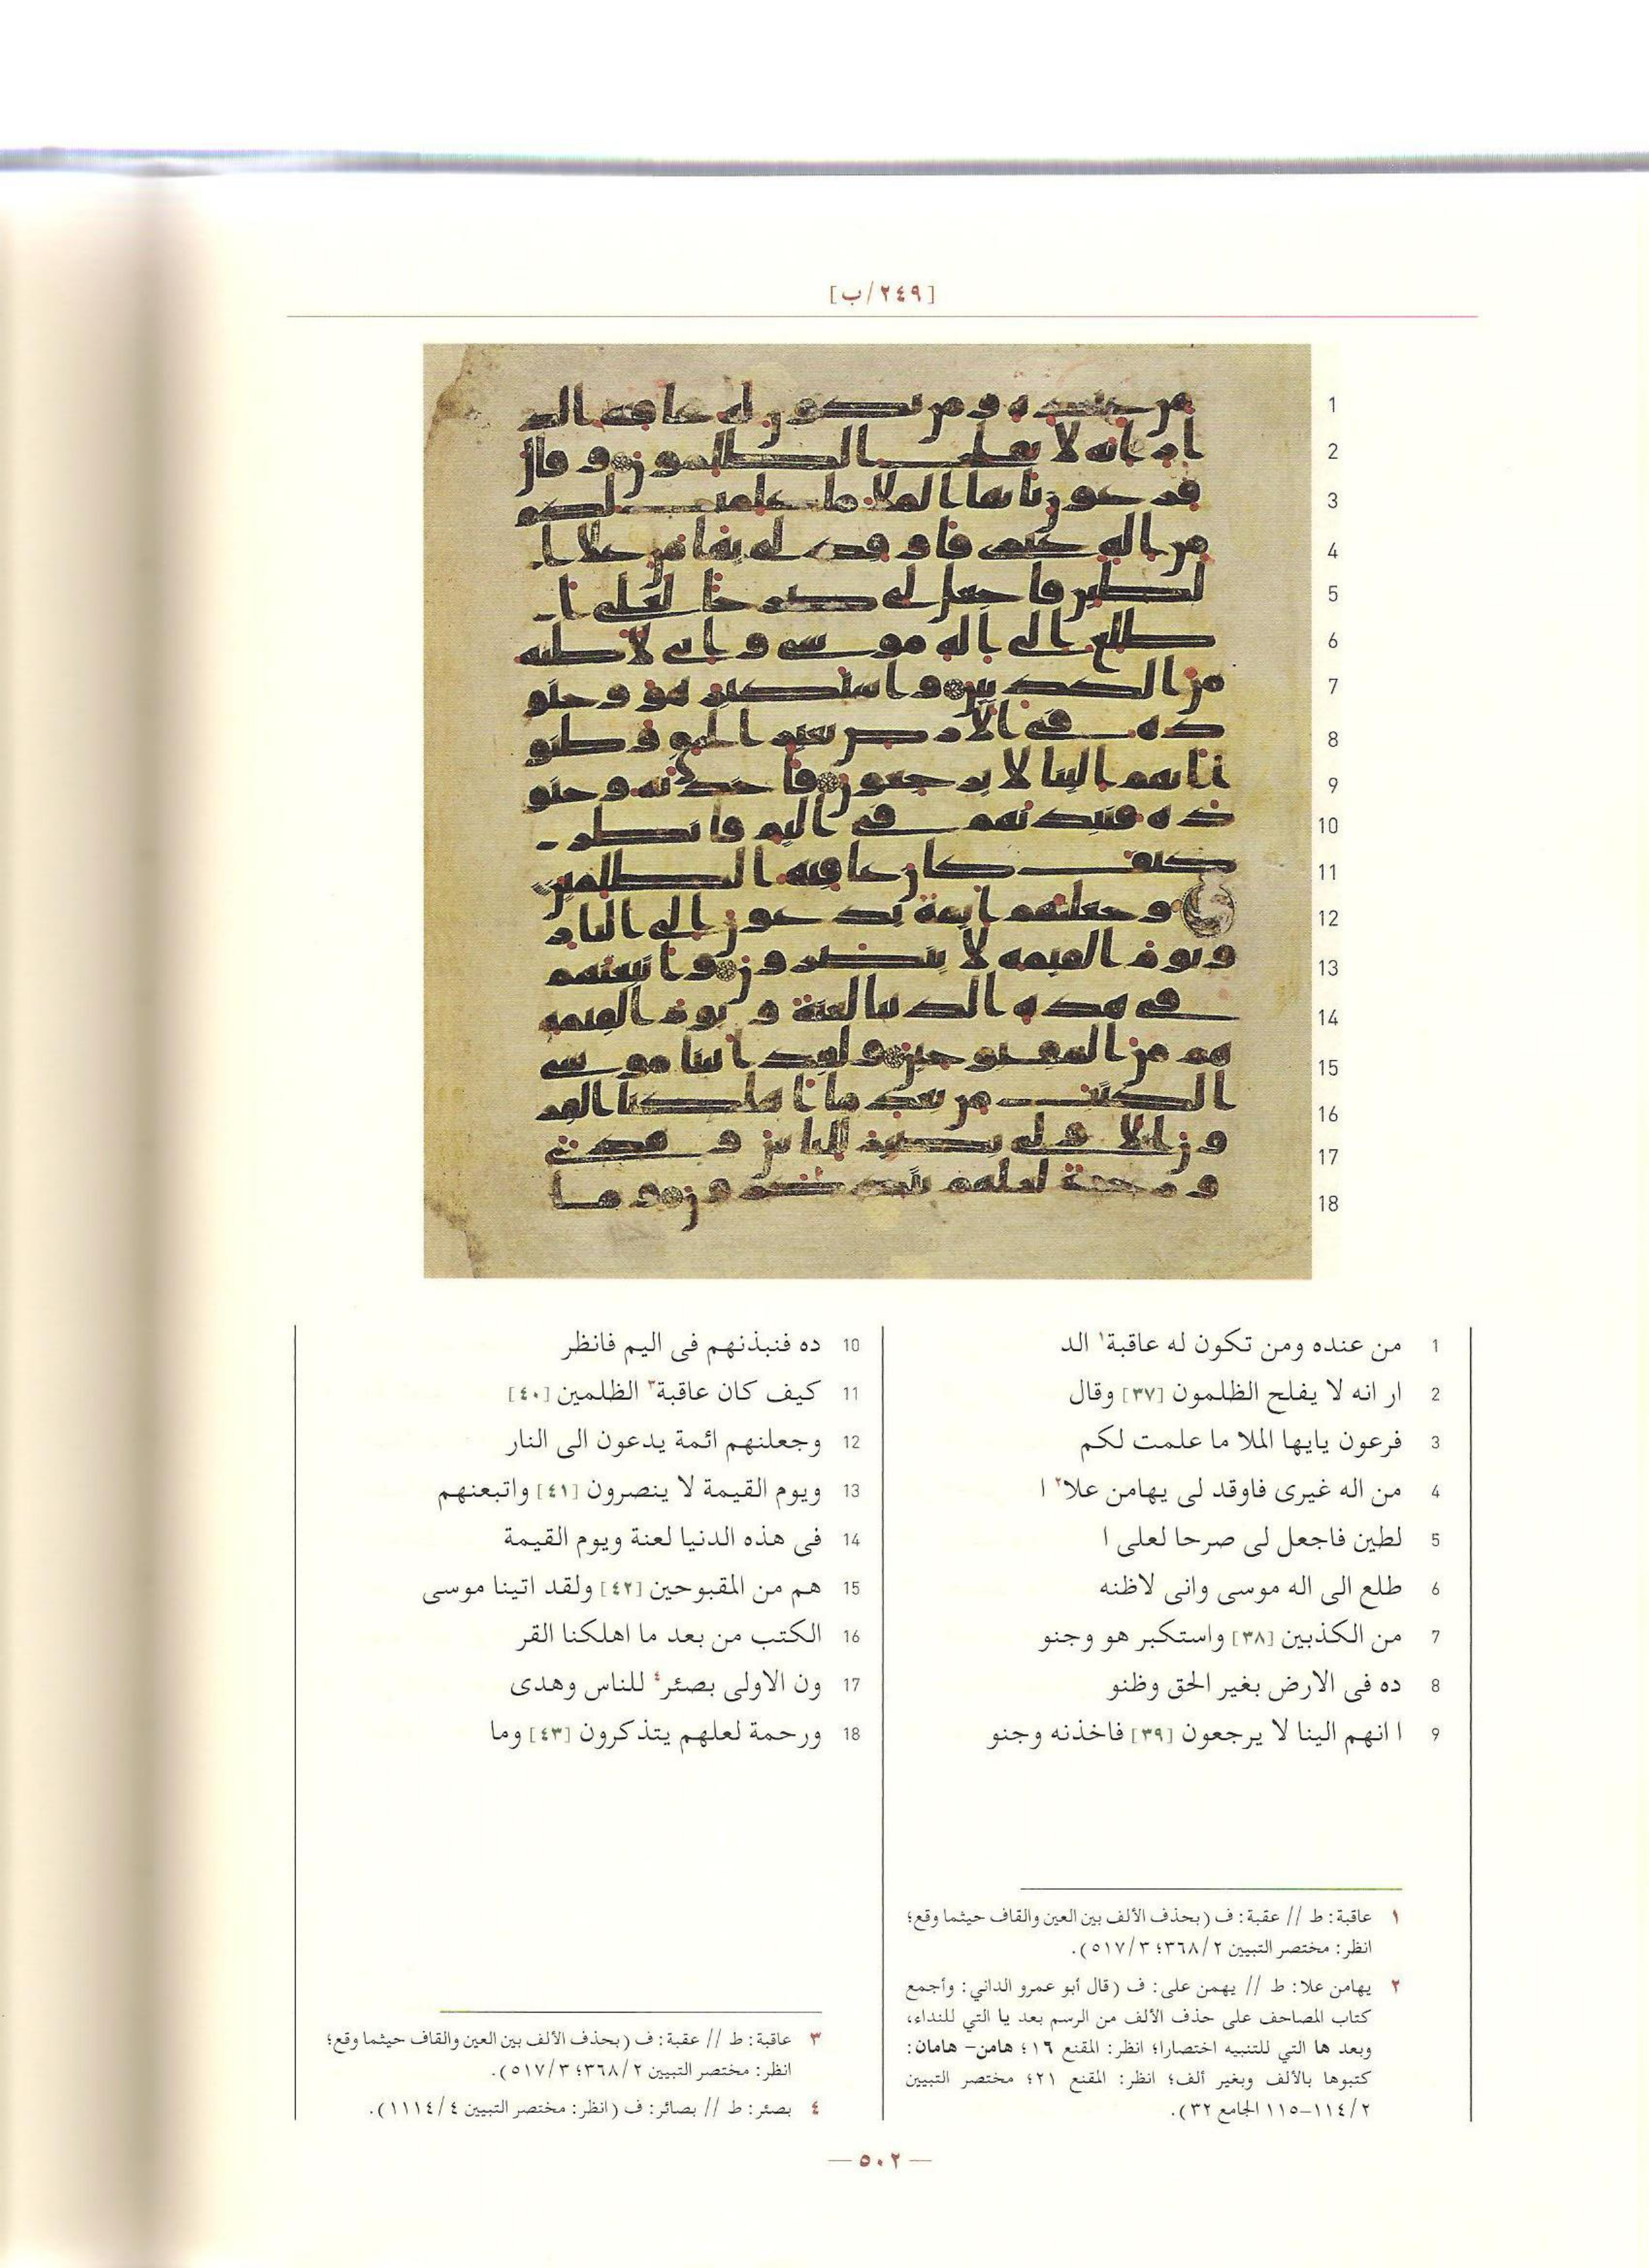 [٢٤٩/ب]
1 من عنده ومن تكون له عاقبة١ الد
2 ار انه لا يفلح الظلمون [٣٧] وقال
3 فرعون يايها الملا ما علمت لكم
4 من اله غيرى فاوقد لى يهامن علا٢ ا
5 لطين فاجعل لى صرحا لعلى ا
6 طلع الى اله موسى وانى لاظنه
7 من الكذبين [٣٨] واستكبر هو وجنو
8 ده فى الارض بغير الحق وظنو
9 ا انهم الينا لا يرجعون [٣٩] فاخذنه وجنو
10 ده فنبذنهم فى اليم فانظر
11 كيف كان عاقبة٣ الظلمين [٤٠]
12 وجعلنهم ائمة يدعون الى النار
13 ويوم القيمة لا ينصرون [٤١] واتبعنهم
14 فى هذه الدنيا لعنة ويوم القيمة
15 هم من المقبوحين [٤٢] ولقد اتينا موسى
16 الكتب من بعد ما اهلكنا القر
17 ون الاولى بصئر٤ للناس وهدى
18 ورحمة لعلهم يتذكرون [٤٣] وما
١ عاقبة: ط // عقبة: ف (بحذف الألف بين العين والقاف حيثما وقع؛
انظر: مختصر التبيين ٣٦٨/٢؛ ٥١٧/٣).
٢ يهامن علا: ط // يهمن على: ف (قال أبو عمرو الداني: وأجمع
كتاب المصاحف على حذف الألف من الرسم بعد يا التي للنداء،
وبعد ها التي للتنبيه اختصارا؛ انظر: المقنع ١٦؛ هامن- هامان:
كتبوها بالألف وبغير ألف؛ انظر: المقنع ٢١؛ مختصر التبيين
١١٤/٢-١١٥ الجامع ٣٢).
٣ عاقبة: ط // عقبة: ف (بحذف الألف بين العين والقاف حيثما وقع؛
انظر: مختصر التبيين ٣٦٨/٢؛ ٥١٧/٣).
٤ بصئر: ط // بصائر: ف (انظر: مختصر التبيين ١١١٤/٤).
— ٥٠٢ —